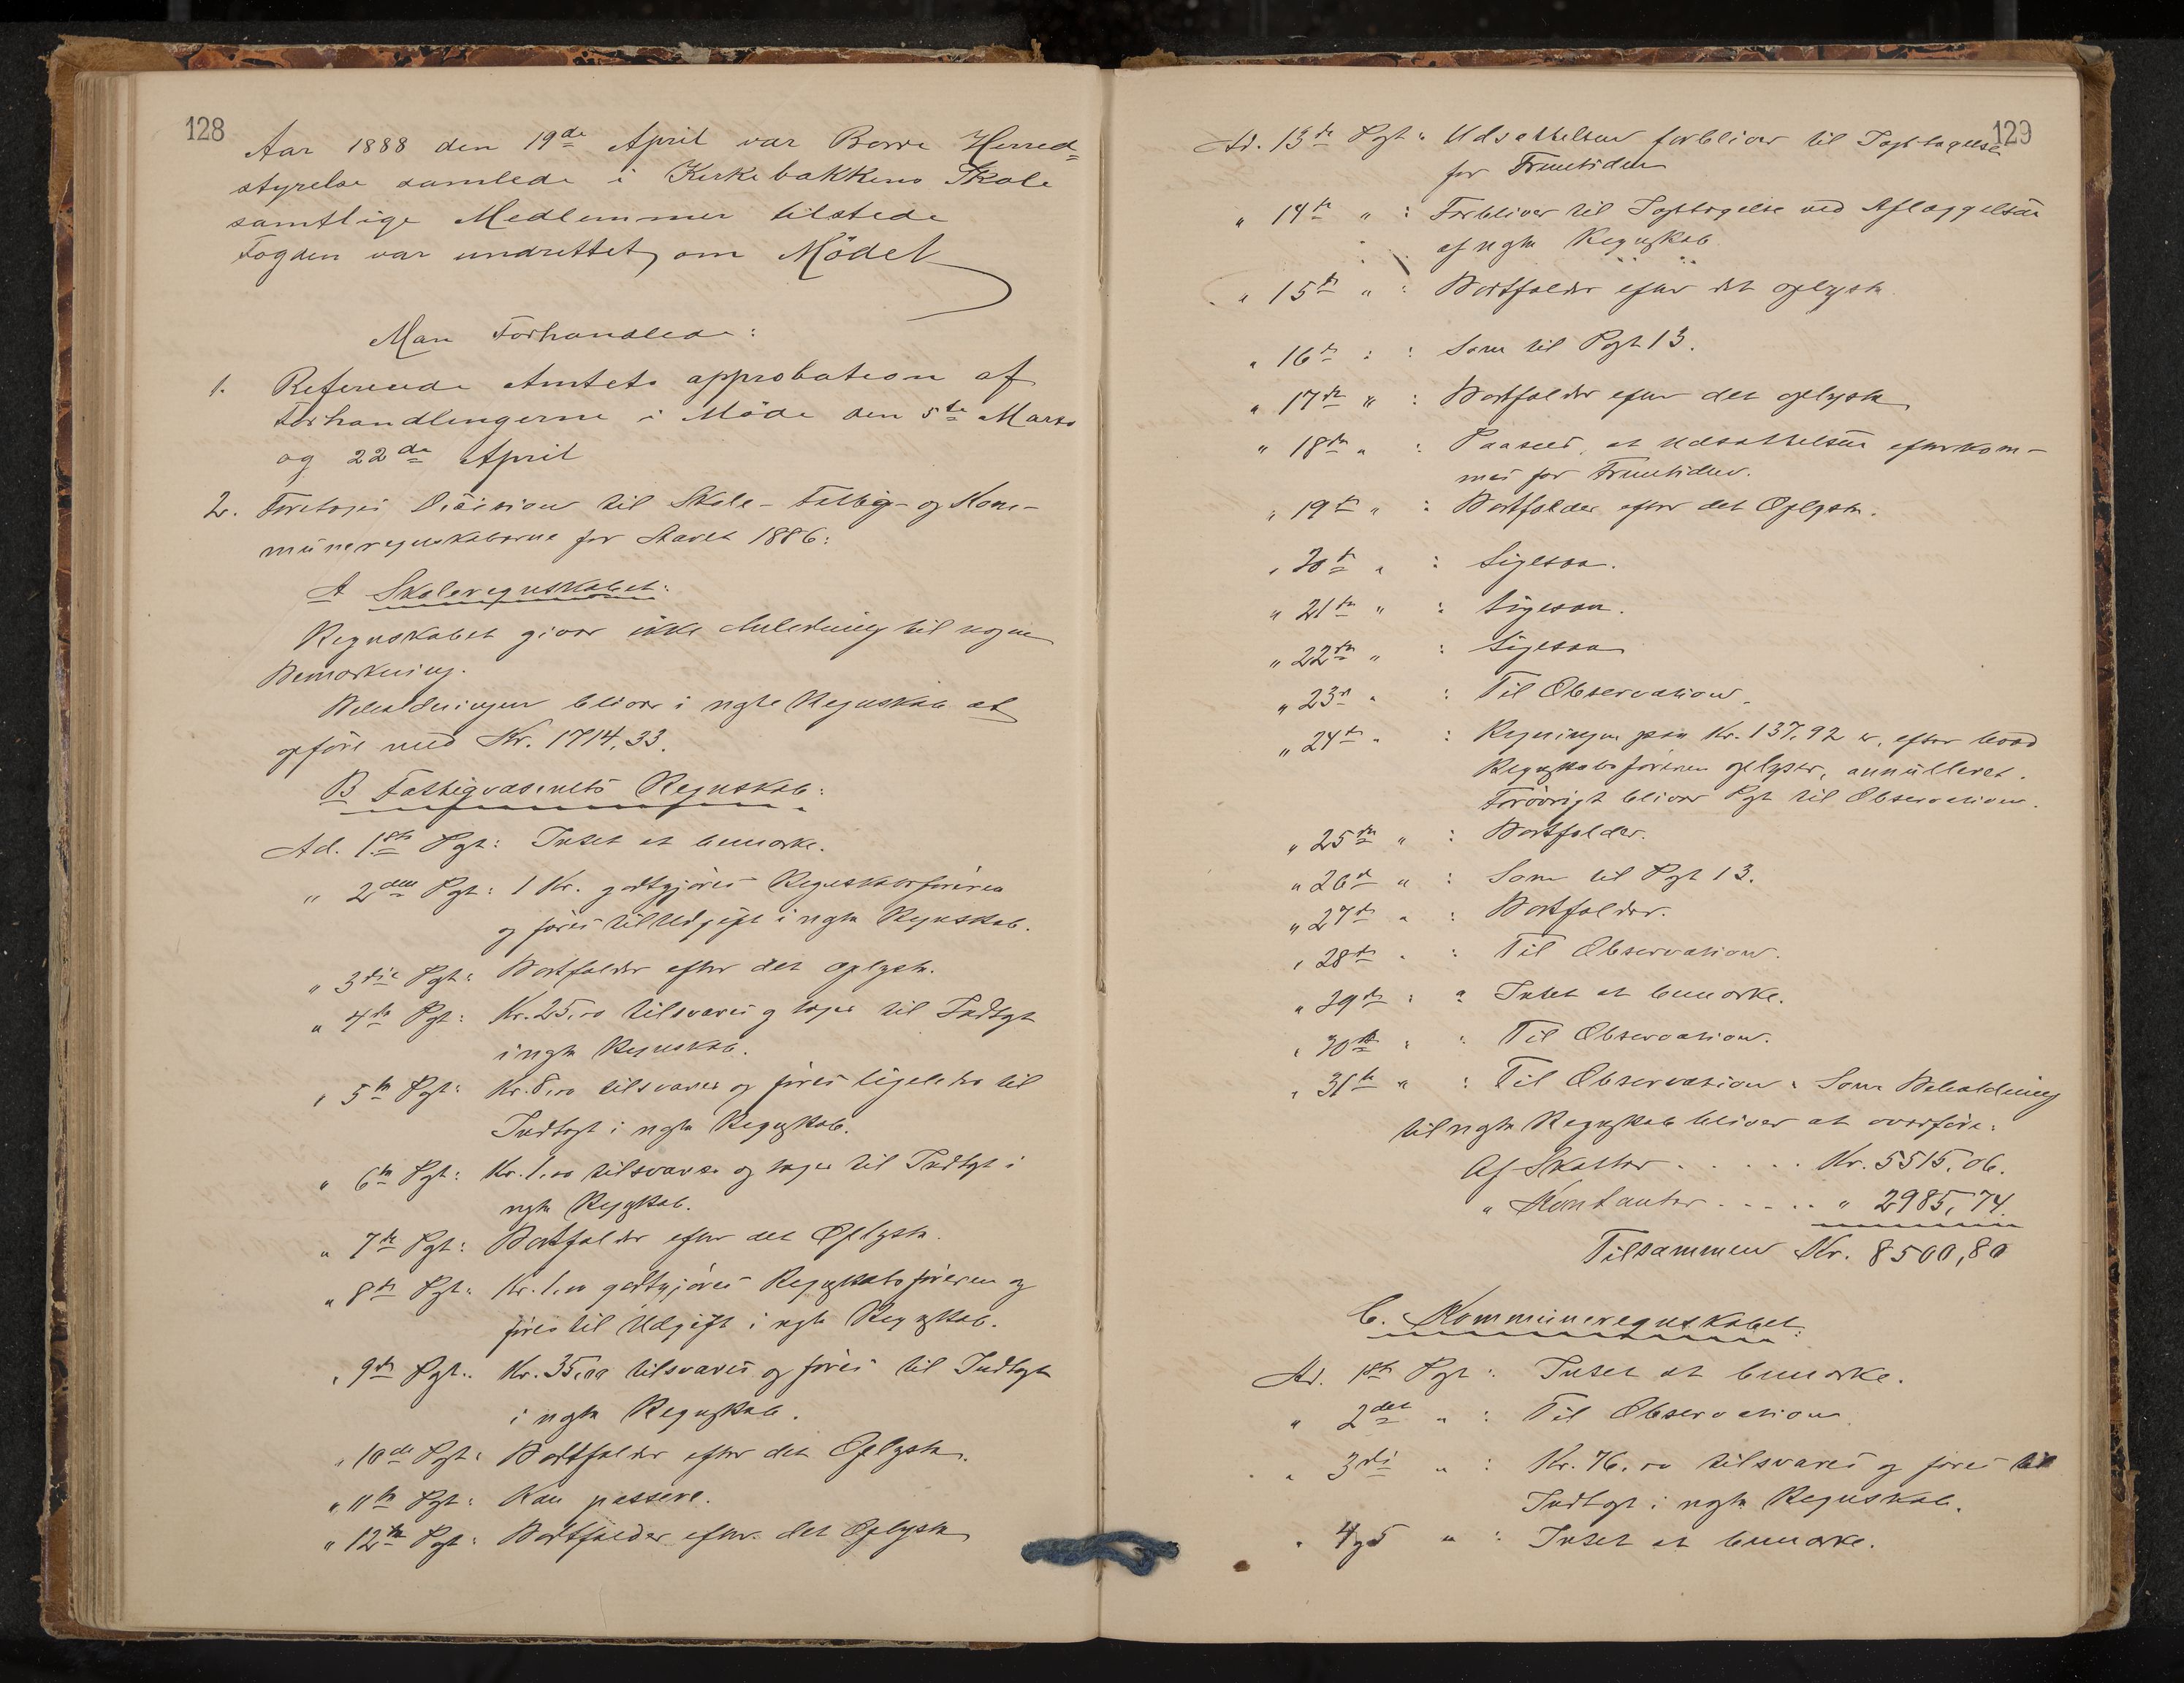 128
Aar 1888 den 19de April var Borre Herred=
styrelse samlede i Kirkebakkens Skole
samtlige Medlemmer tilstede
Fogden var undrettet om Mödet
Man Forhandlede:
1. Refererede Amtets approbation af
Forhandlingerne i Möde den 5te Marts
og 22de April
2. Foretoges Decision til Skole- Fattig- og Kom-
muneregnskaberne for Aaret 1886:
A Skoleregnskabet:
Regnskabet giver ikke Anledning til nogen
Bemærkning.
Beholdningen bliver i nyte Regnskab at
opföre med Kr. 1714,33.
B Fattigvæsenets Regnskab:
Ad. 1ste Pgt: Intet at bemærke.
" 2den Pgt: 1 Kr. godtgjöres Regnskabsföreren
og föres til Udgift i nyte Regnskab.
" 3die Pgt: Bortfalder efter det oplyste.
" 4de Pgt: Kr. 25,00 tilsvares og tages til Indtægt
i nyte Regnskab.
" 5te Pgt: Kr. 8,00 tilsvares og föres ligeledes til
Indtægt i nyte Regnskab.
" 6te Pgt: Kr. 1,00 tilsvares og tages til Indtægt i
nyte Regnskab.
" 7de Pgt: Bortfalder efter det Oplyste.
" 8de Pgt: Kr. 1,00 godtgjöres Regnskabsföreren og
föres til Udgift i nyte Regnskab.
" 9de Pgt: Kr. 35,00 tilsvares og föres til Indtægt
i nyte Regnskab.
" 10de Pgt: Bortfalder efter det Oplyste.
" 11te Pgt: Kan passere.
" 12te Pgt: Bortfalder efter det Oplyste
129
Ad. 13de Pgt: Udsættelsen forbliver til Iagttagelse
for Fremtiden
" 14de " : Forbliver til Iagttagelse ved Aflæggelsen
af nyte Regnskab.
" 15de " : Bortfalder efter det oplyste.
" 16de " : Som til Pgt 13.
" 17de " : Bortfalder efter det oplyste
" 18de " : Paasees, at Udsættelsen efterkom-
mes for Fremtiden.
" 19de " : Bortfalder efter det Oplyste.
" 20de " : Ligesaa.
" 21de " : Ligesaa.
" 22de " : Ligesaa
" 23de " : Til Observation.
" 24de " : Regningen paa Kr. 137,92 er, efter hvad
Regnskabsföreren oplyser, annulleret.
Forövrigt bliver Pgt til Observation.
" 25de " : Bortfalder.
" 26de " : Som til Pgt 13.
" 27de " : Bortfalder.
" 28de " : Til Observation.
" 29de " : Intet at bemærke.
" 30te " : Til Observation.
" 31te " : Til Observation. Som Beholdning
til nyte Regnskab bliver at overföre:
Af Skatter . . . . . Kr. 5515,06.
" Kontanter . . . . . " 2985,74.
Tilsammen Kr. 8500,80
C. Kommuneregnskabet:
Ad. 1ste Pgt: Intet at bemærke.
" 2det " : Til Observation
" 3die " : Kr. 76,00 tilsvares og föres til
Indtægt i nyte Regnskab.
" 4 og 5 " : Intet at bemærke.